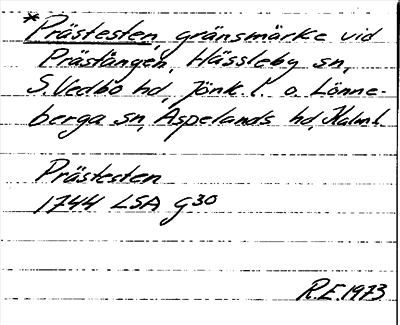 *Prästesten, gränsmärke vid
Prästängen, Hässleby sn,
S. Vedbo hd, Jönk. l. o. Lönne-
berga sn, Aspelands hd, Kalm. l.
Prästesten
1744 LSA G30
R.E. 1973